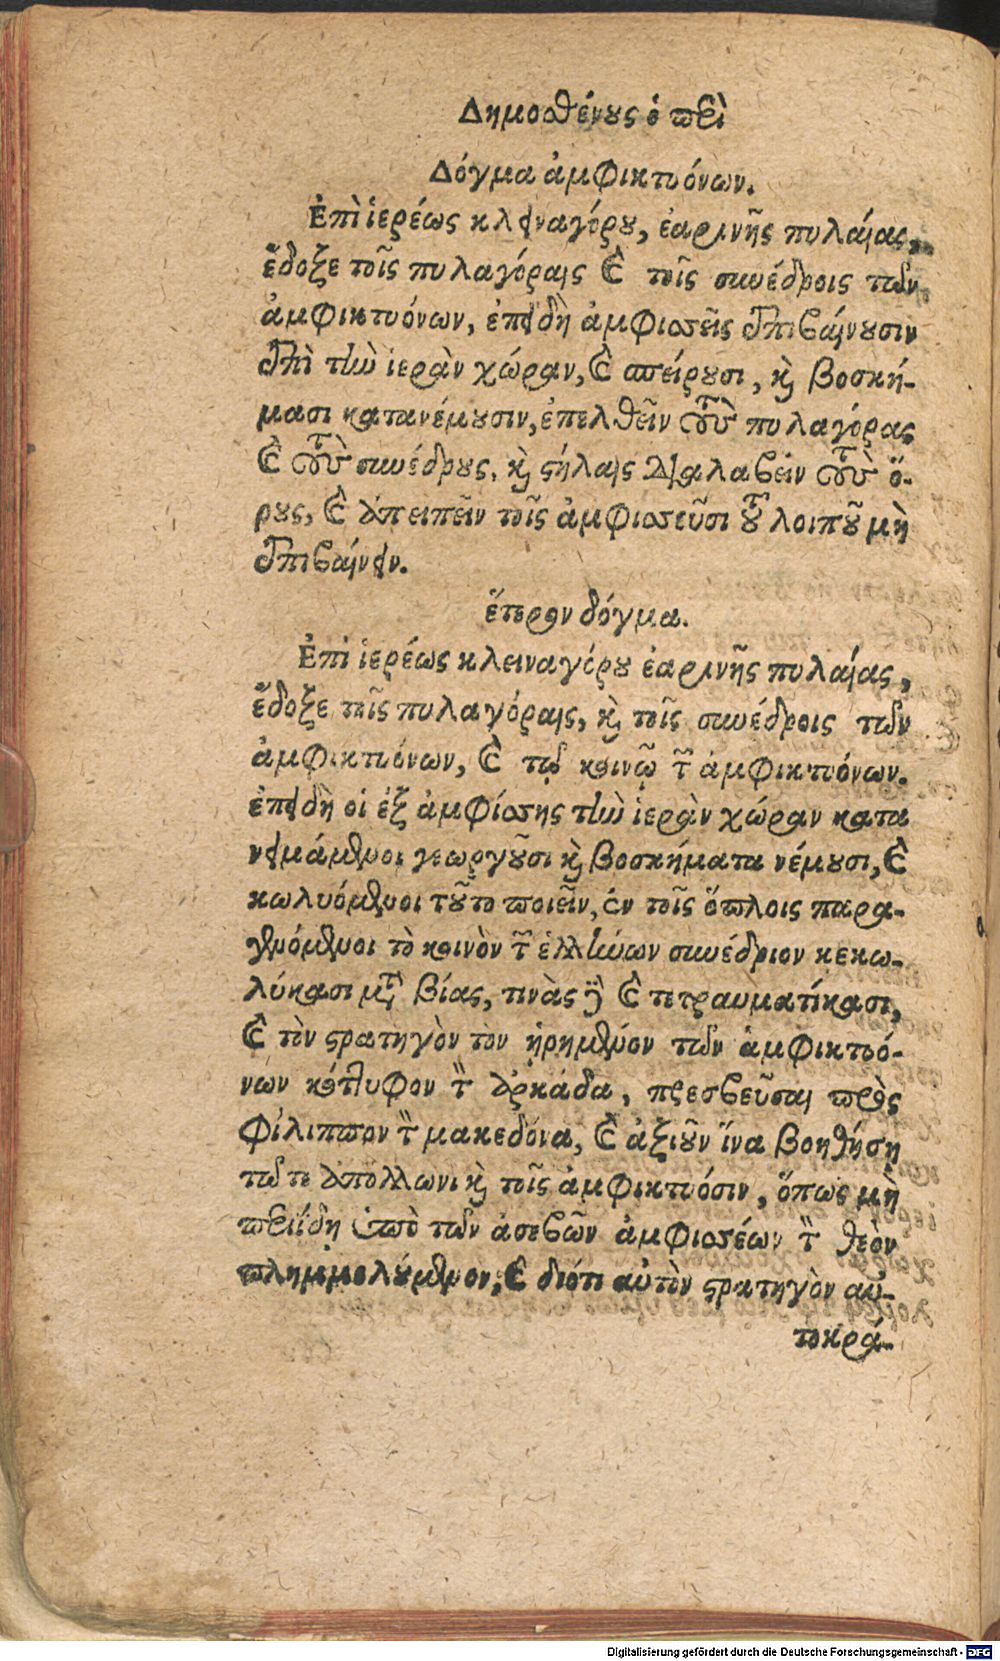 Δημοσθένους ὁ περὶ
Δόγμα ἀμφικτυόνων.
Ἐπὶ ἱερέως κλειναγόρου, ἐαρινῆς πυλαίας,
ἔδοξε τοῖς πυλαγόραις καὶ τοῖς συνέδροις τῶν
ἀμφικτυόνων, ἐπειδὴ ἀμφισσεῖς ἐπιβαίνουσιν
ἐπὶ τὴν ἱερὰν χώραν, καὶ σπείρουσι, καὶ βοσκή-
μασι κατανέμουσιν, ἐπελθεῖν τοὺς πυλαγόρας
καὶ τοὺς συνέδρους, καὶ στήλαις διαλαβεῖν τοὺς ὅ-
ρους, καὶ ἀπειπεῖν τοῖς ἀμφισσεῦσι τοῦ λοιποῦ μὴ
ἐπιβαίνειν.
ἕτερον δόγμα.
Ἐπὶ ἱερέως κλειναγόρου ἐαρινῆς πυλαίας,
ἔδοξε τοῖς πυλαγόραις, καὶ τοῖς συνέδροις τῶν
ἀμφικτυόνων, καὶ τῷ κοινῷ τῶν ἀμφικτυόνων.
ἐπειδὴ οἱ ἐξ ἀμφίσσης τὴν ἱερὰν χώραν κατα
νειμάμενοι γεωργοῦσι καὶ βοσκήματα νέμουσι, καὶ
κωλυόμενοι τοῦτο ποιεῖν, ἐν τοῖς ὅπλοις παρα-
γενόμενοι τὸ κοινὸν τῶν ἑλλήνων συνέδριον κεκω-
λύκασι μετὰ βίας, τινὰς δὲ καὶ τετραυματίκασι,
καὶ τὸν στρατηγὸν τὸν ᾑρημένον τῶν ἀμφικτυό-
νων κότυφον τὸν ἀρκάδα, πρεσβεῦσαι πρὸς
Φίλιππον τὸν μακεδόνα, καὶ ἀξιοῦν ἵνα βοηθήσῃ
τῷ τε ἀπόλλωνι καὶ τοῖς ἀμφικτυόσιν, ὅπως μὴ
περιίδῃ ὑπὸ τῶν ἀσεβῶν ἀμφισσέων τὸν θεὸν
πλημμελούμενον, καὶ διότι αὐτὸν στρατηγὸν αὐ-
τοκρά-
Digitalisierung gefördert durch die Deutsche Forschungsgemeinschaft - DFG